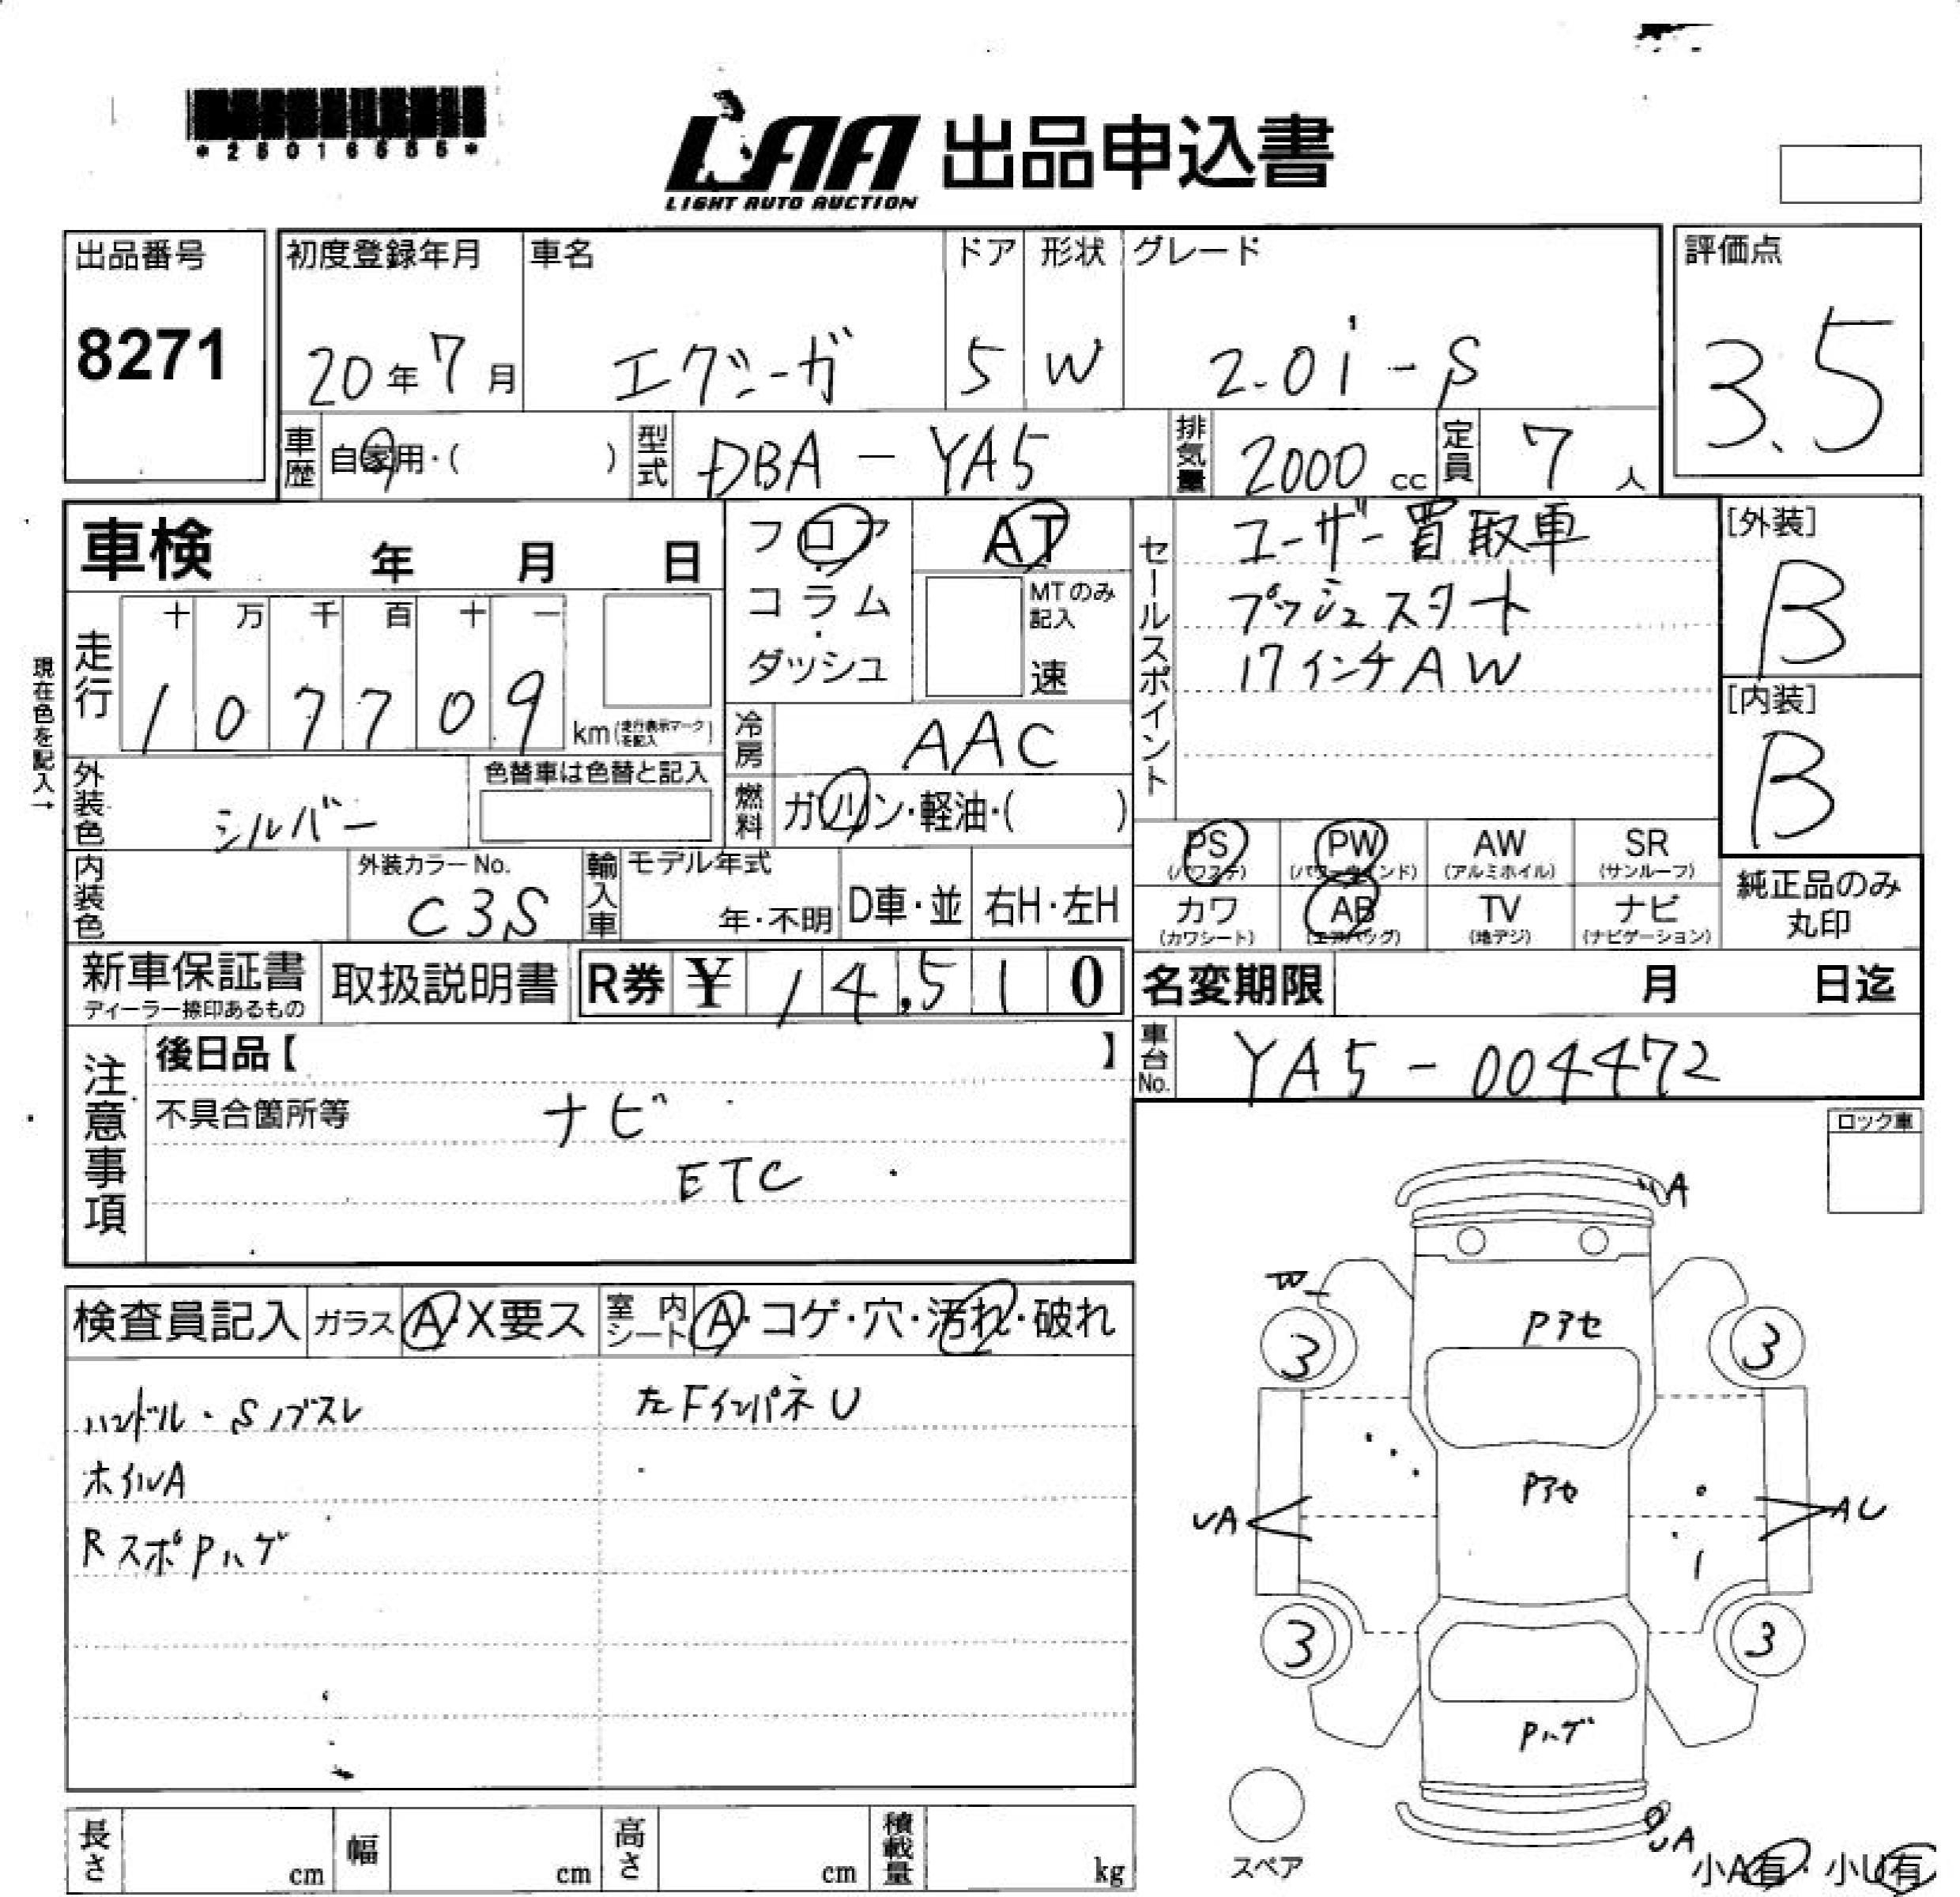 *25016555*
LAA 出品申込書
LIGHT AUTO AUCTION
出品番号
8271
初度登録年月 車名 ドア 形状 グレード
20年7月 エクシーガ 5 W 2.0i-S
評価点
3.5
車歴 自家用・( ) 型式 DBA-YA5 排気量 2000cc 定員 7人
車検 年 月 日
走行 十 万 千 百 十 一
107709 km(走行表示マークを記入)
現在色を記入→
フロア・コラム・ダッシュ
AT
MTのみ記入
速
冷房 AAC
燃料 ガソリン・軽油・( )
外装色 シルバー
色替車は色替と記入
内装色
外装カラーNo.
C3S
輸入車 モデル年式
年・不明 D車・並 右H・左H
セールスポイント
ユーザー買取車
プッシュスタート
17インチAW
[外装]
B
[内装]
B
PS (パワステ) PW (パワーウインド) AW (アルミホイル) SR (サンルーフ)
カワ (カワシート) AB (エアバッグ) TV (地デジ) ナビ (ナビゲーション)
純正品のみ
丸印
新車保証書
ディーラー捺印あるもの
取扱説明書
R券 ¥ 14,510
名変期限 月 日迄
車台No. YA5-004472
注意事項
後日品【 】
不具合箇所等 ナビ
ETC
ロック車
検査員記入 ガラス A・X要ス 室内シート A・コゲ・穴・汚れ・破れ
ハンドル・Sノブスレ 左FインパネU
ホイルA
RスポPハゲ
A
W
Pアセ
3 3
Pアセ
UA AU
3 3
Pハゲ
UA
スペア
小A有・小U有
長さ cm 幅 cm 高さ cm 積載量 kg